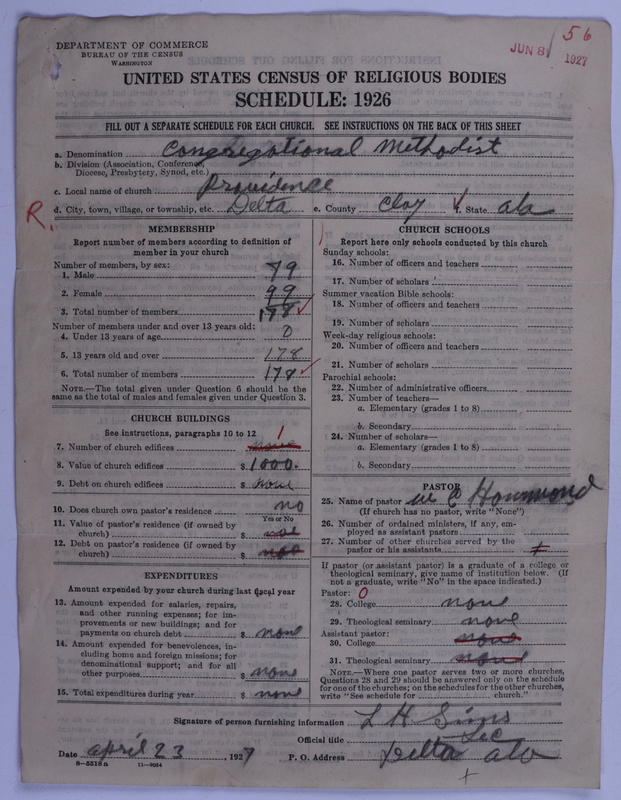 56
JUN 8 1927
DEPARTMENT OF COMMERCE
BUREAU OF THE CENSUS
WASHINGTON
UNITED STATES CENSUS OF RELIGIOUS BODIES
SCHEDULE: 1926
FILL OUT A SEPARATE SCHEDULE FOR EACH CHURCH. SEE INSTRUCTIONS ON THE BACK OF THIS SHEET
a. Denomination Congregational Methodist
b. Division (Association, Conference, Diocese, Presbytery, Synod, etc.)
c. Local name of church Providence
R. d. City, town, village, or township, etc. Delta e. County Clay f. State ala
MEMBERSHIP
Report number of members according to definition of member in your church
Number of members, by sex:
1. Male 79
2. Female 99
3. Total number of members 178
Number of members under and over 13 years old:
4. Under 13 years of age 0
5. 13 years old and over 178
6. Total number of members 178
NOTE.—The total given under Question 6 should be the same as the total of males and females given under Question 3.
CHURCH BUILDINGS
See instructions, paragraphs 10 to 12
1
7. Number of church edifices none
8. Value of church edifices $ 1000.
9. Debt on church edifices $ none
10. Does church own pastor's residence no
Yes or No
11. Value of pastor's residence (if owned by church) $
12. Debt on pastor's residence (if owned by church) $
EXPENDITURES
Amount expended by your church during last fiscal year
13. Amount expended for salaries, repairs, and other running expenses; for improvements or new buildings; and for payments on church debt $ none
14. Amount expended for benevolences, including home and foreign missions; for denominational support; and for all other purposes $ none
15. Total expenditures during year $ none
CHURCH SCHOOLS
Report here only schools conducted by this church
Sunday schools:
16. Number of officers and teachers
17. Number of scholars
Summer vacation Bible schools:
18. Number of officers and teachers
19. Number of scholars
Week-day religious schools:
20. Number of officers and teachers
21. Number of scholars
Parochial schools:
22. Number of administrative officers
23. Number of teachers—
a. Elementary (grades 1 to 8)
b. Secondary
24. Number of scholars—
a. Elementary (grades 1 to 8)
b. Secondary
PASTOR
25. Name of pastor
(If church has no pastor, write "None")
26. Number of ordained ministers, if any, employed as assistant pastors
27. Number of other churches served by the pastor or his assistants
If pastor (or assistant pastor) is a graduate of a college or theological seminary, give name of institution below. (If not a graduate, write "No" in the space indicated.)
Pastor: 0
28. College none
29. Theological seminary none
Assistant pastor:
30. College none
31. Theological seminary none
NOTE.—Where one pastor serves two or more churches, Questions 28 and 29 should be answered only on the schedule for one of the churches; on the schedules for the other churches, write "See schedule for church."
Signature of person furnishing information L H Sims
Official title Sec
Date april 23, 1927 P. O. Address Delta ala
8—5518a 11—9034